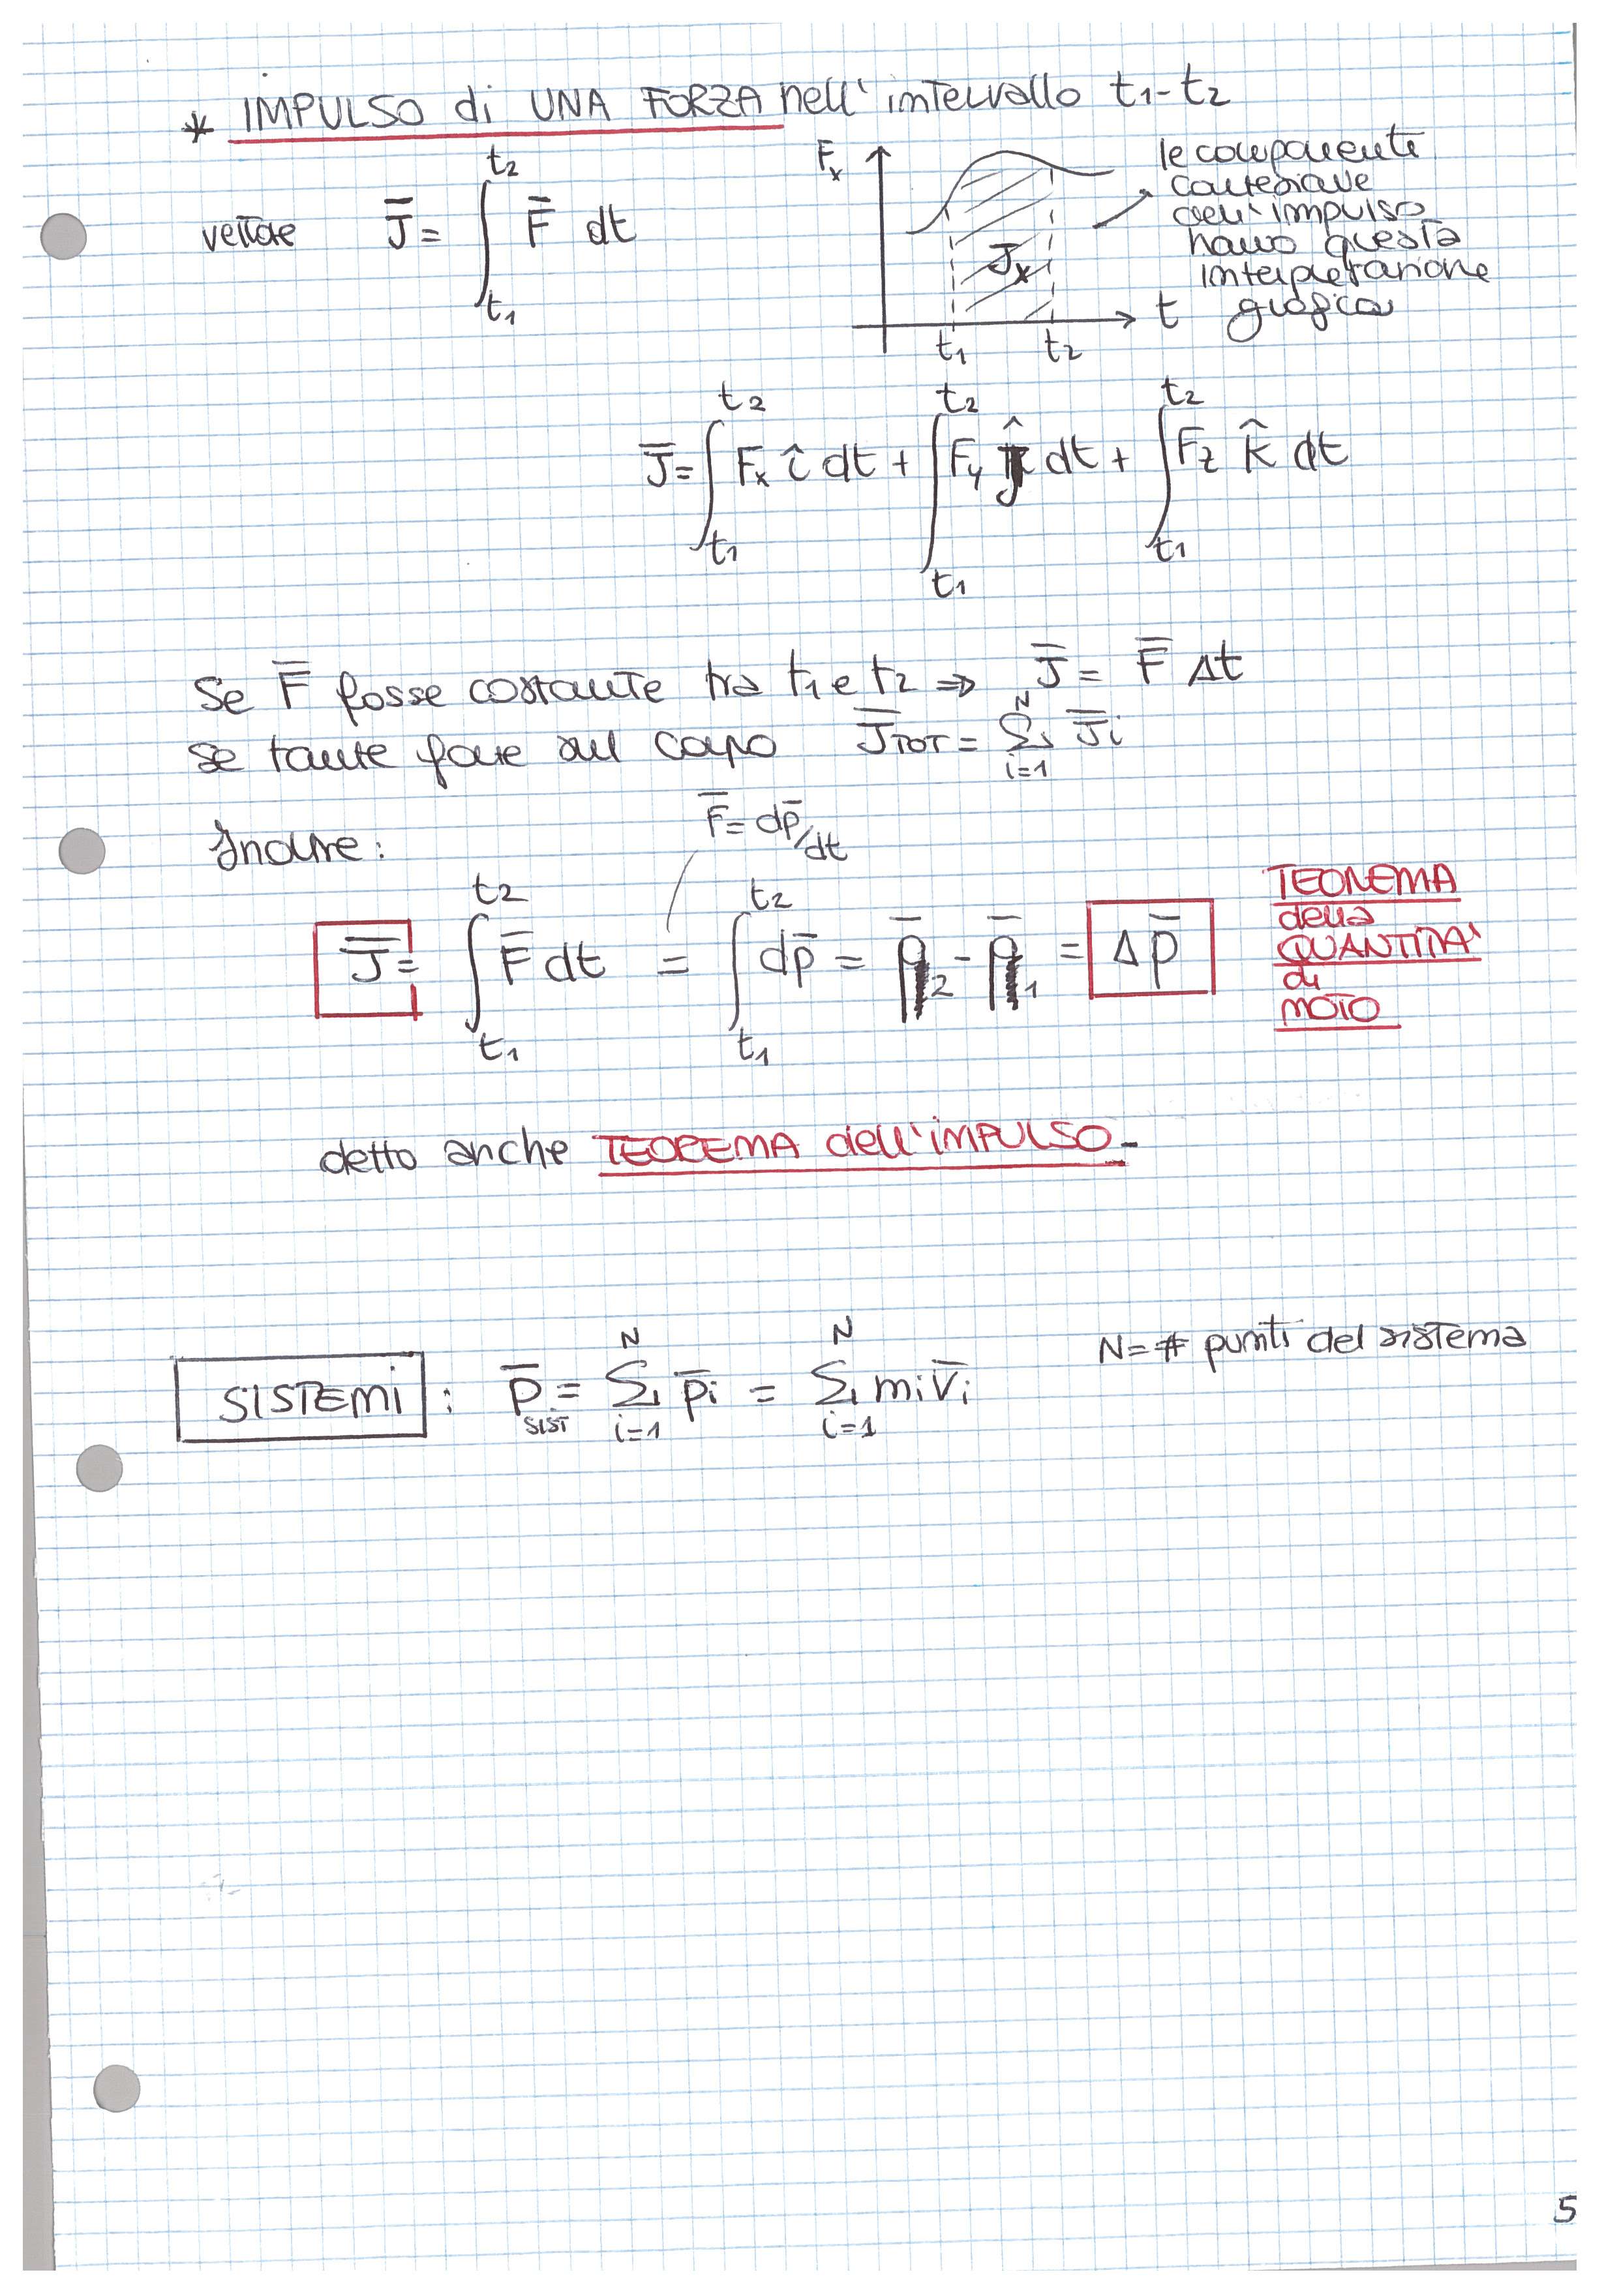 * IMPULSO di UNA FORZA nell'intervallo t₁-t₂
vettore J̅ = ∫_{t₁}^{t₂} F̅ dt
Fₓ
Jₓ
t₁ t₂ t
le componenti
cartesiane
dell'impulso
hanno questa
interpretazione
grafica
J̅ = ∫_{t₁}^{t₂} Fₓ î dt + ∫_{t₁}^{t₂} F_y ĵ dt + ∫_{t₁}^{t₂} F_z k̂ dt
Se F̅ fosse costante tra t₁ e t₂ ⇒ J̅ = F̅ Δt
se tante forze sul corpo J̅_TOT = Σ_{i=1}^{N} J̅i
Inoltre:
F̅ = dp̅/dt
J̅ = ∫_{t₁}^{t₂} F̅ dt = ∫_{t₁}^{t₂} dp̅ = p̅₂ - p̅₁ = Δp̅
TEOREMA
della
QUANTITA'
di
MOTO
detto anche TEOREMA dell'IMPULSO-
SISTEMI : p̅_SIST = Σ_{i=1}^{N} p̅i = Σ_{i=1}^{N} mi v̅i
N = # punti del sistema
5